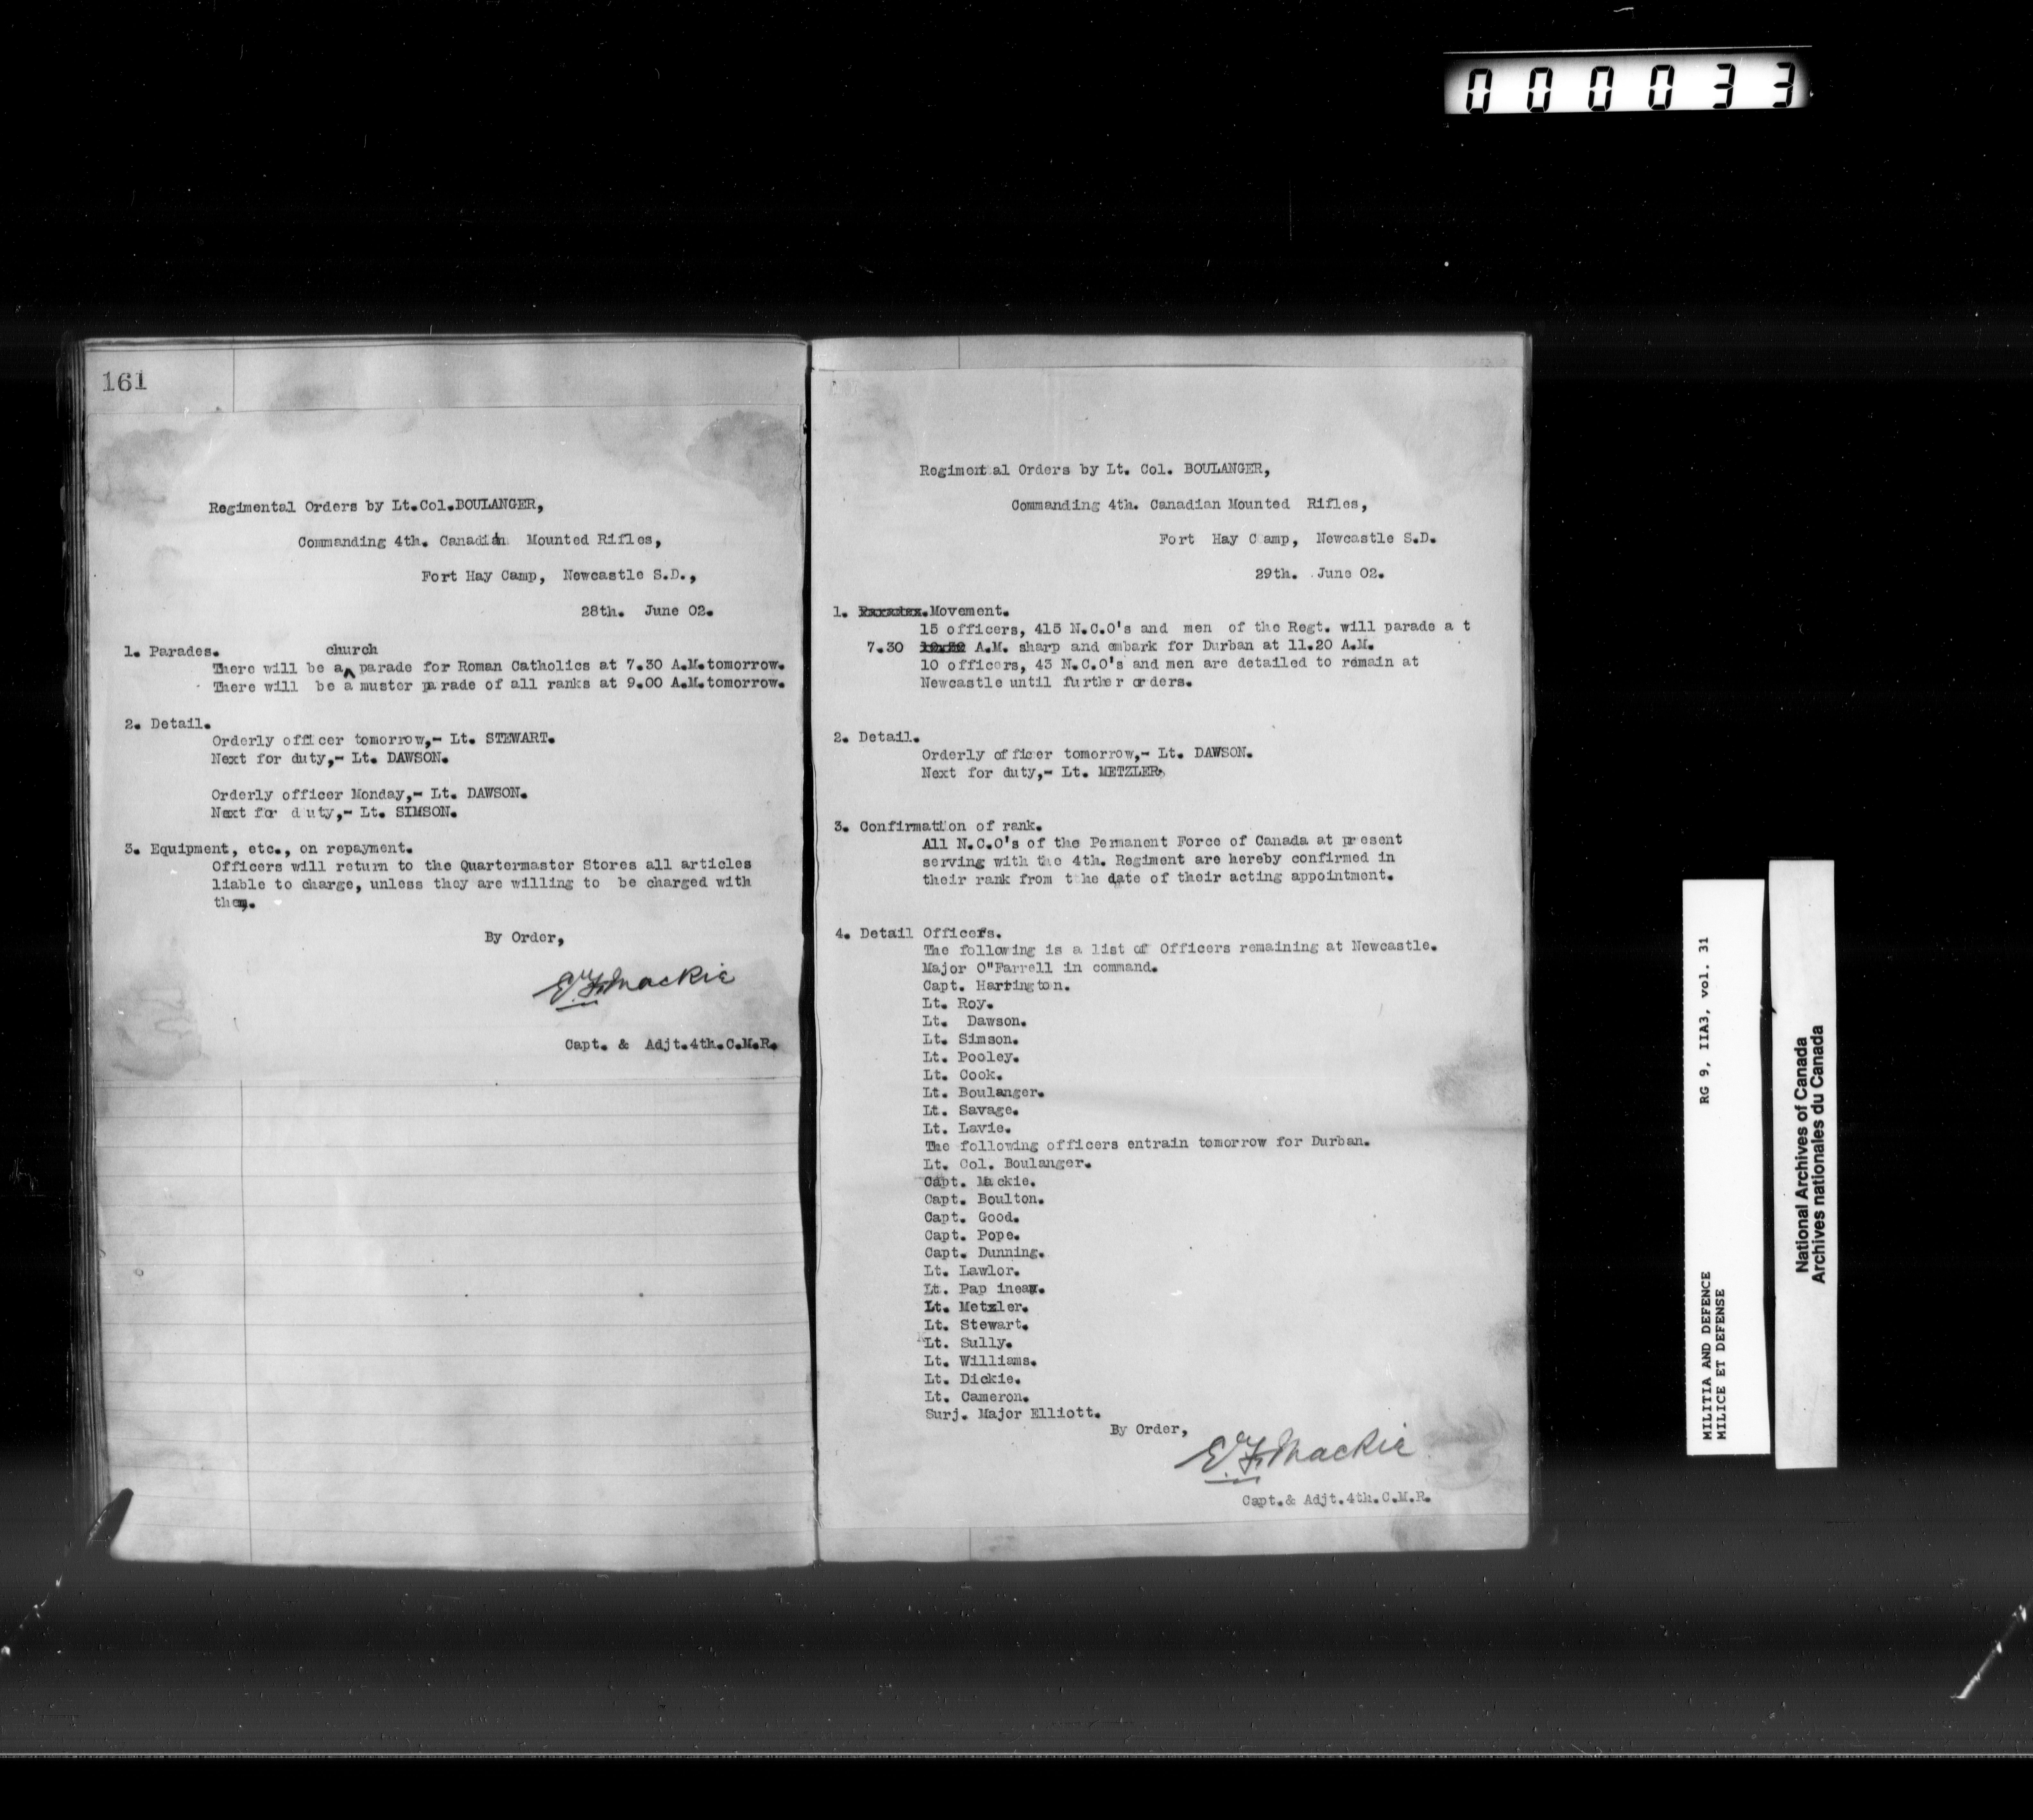 000033
161
Regimental Orders by Lt.Col.BOULANGER,
Commanding 4th. Canadian Mounted Rifles,
Fort Hay Camp, Newcastle S.D.,
28th. June 02.
1. Parades. church
There will be a parade for Roman Catholics at 7.30 A.M.tomorrow.
There will be a muster parade of all ranks at 9.00 A.M.tomorrow.
2. Detail.
Orderly officer tomorrow,- Lt. STEWART.
Next for duty,- Lt. DAWSON.
Orderly officer Monday,- Lt. DAWSON.
Next for duty,- Lt. SIMSON.
3. Equipment, etc., on repayment.
Officers will return to the Quartermaster Stores all articles
liable to charge, unless they are willing to be charged with
them.
By Order,
E.F. Mackie
Capt. & Adjt.4th.C.M.R.
Regimental Orders by Lt. Col. BOULANGER,
Commanding 4th. Canadian Mounted Rifles,
Fort Hay Camp, Newcastle S.D.
29th. June 02.
1. Parades. Movement.
15 officers, 415 N.C.O's and men of the Regt. will parade a t
7.30 A.M. sharp and embark for Durban at 11.20 A.M.
10 officers, 43 N.C.O's and men are detailed to remain at
Newcastle until further orders.
2. Detail.
Orderly officer tomorrow,- Lt. DAWSON.
Next for duty,- Lt. METZLER.
3. Confirmation of rank.
All N.C.O's of the Permanent Force of Canada at present
serving with the 4th. Regiment are hereby confirmed in
their rank from the date of their acting appointment.
4. Detail Officers.
The following is a list of Officers remaining at Newcastle.
Major O"Farrell in command.
Capt. Harrington.
Lt. Roy.
Lt. Dawson.
Lt. Simson.
Lt. Pooley.
Lt. Cook.
Lt. Boulanger.
Lt. Savage.
Lt. Lavie.
The following officers entrain tomorrow for Durban.
Lt. Col. Boulanger.
Capt. Mackie.
Capt. Boulton.
Capt. Good.
Capt. Pope.
Capt. Dunning.
Lt. Lawlor.
Lt. Papineau.
Lt. Metzler.
Lt. Stewart.
Lt. Sully.
Lt. Williams.
Lt. Dickie.
Lt. Cameron.
Surj. Major Elliott.
By Order,
E.F. Mackie
Capt.& Adjt.4th.C.M.R.
MILITIA AND DEFENCE RG 9, IIA3, vol. 31
MILICE ET DEFENSE
National Archives of Canada
Archives nationales du Canada